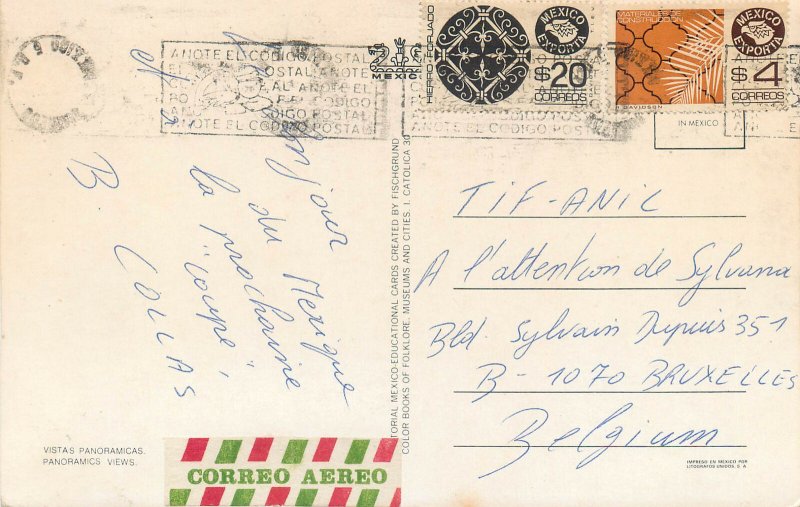 ANOTE EL CODIGO POSTAL
MEXICO
HIERRO FORJADO
MEXICO
EXPORTA
$20
CORREOS
MATERIALES DE
CONSTRUCCION
MEXICO
EXPORTA
$4
CORREOS
DAVIDSON
ANOTE EL CODIGO POSTAL
IN MEXICO
Bonjour
du Mexique
la prochaine
"coupe"
B. COLLAS
EDITORIAL MEXICO-EDUCATIONAL CARDS CREATED BY FISCHGRUND
COLOR BOOKS OF FOLKLORE, MUSEUMS AND CITIES. I. CATOLICA 30
TIF-ANIL
A l'attention de Sylvana
Bld. Sylvain Dupuis 351
B-1070 BRUXELLES
Belgium
VISTAS PANORAMICAS.
PANORAMICS VIEWS.
CORREO AEREO
IMPRESO EN MEXICO POR
LITOGRAFOS UNIDOS, S. A.